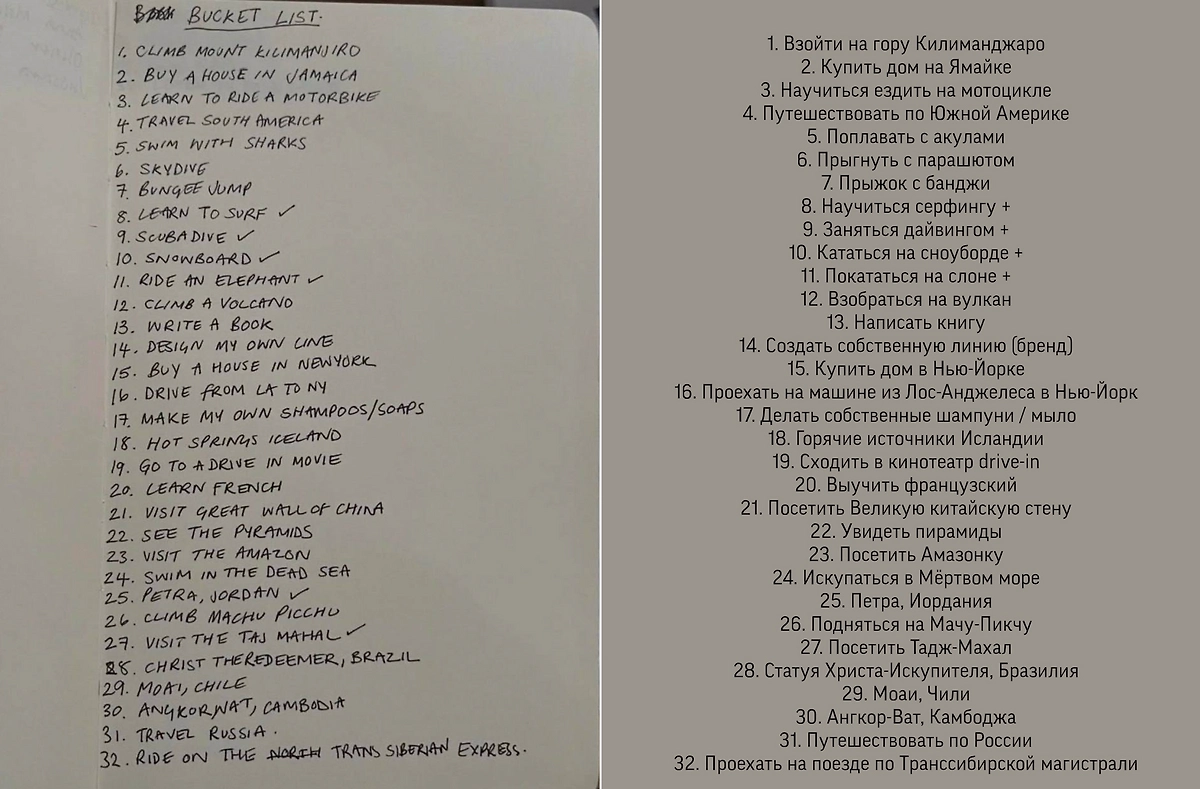 BUCKET LIST.
1. CLIMB MOUNT KILIMANJIRO
2. BUY A HOUSE IN JAMAICA
3. LEARN TO RIDE A MOTORBIKE
4. TRAVEL SOUTH AMERICA
5. SWIM WITH SHARKS
6. SKYDIVE
7. BUNGEE JUMP
8. LEARN TO SURF ✓
9. SCUBADIVE ✓
10. SNOWBOARD ✓
11. RIDE AN ELEPHANT ✓
12. CLIMB A VOLCANO
13. WRITE A BOOK
14. DESIGN MY OWN LINE
15. BUY A HOUSE IN NEWYORK
16. DRIVE FROM LA TO NY
17. MAKE MY OWN SHAMPOOS/SOAPS
18. HOT SPRINGS ICELAND
19. GO TO A DRIVE IN MOVIE
20. LEARN FRENCH
21. VISIT GREAT WALL OF CHINA
22. SEE THE PYRAMIDS
23. VISIT THE AMAZON
24. SWIM IN THE DEAD SEA
25. PETRA, JORDAN ✓
26. CLIMB MACHU PICCHU
27. VISIT THE TAJ MAHAL ✓
28. CHRIST THE REDEEMER, BRAZIL
29. MOAI, CHILE
30. ANGKOR WAT, CAMBODIA
31. TRAVEL RUSSIA.
32. RIDE ON THE NORTH TRANS SIBERIAN EXPRESS.
1. Взойти на гору Килиманджаро
2. Купить дом на Ямайке
3. Научиться ездить на мотоцикле
4. Путешествовать по Южной Америке
5. Поплавать с акулами
6. Прыгнуть с парашютом
7. Прыжок с банджи
8. Научиться серфингу +
9. Заняться дайвингом +
10. Кататься на сноуборде +
11. Покататься на слоне +
12. Взобраться на вулкан
13. Написать книгу
14. Создать собственную линию (бренд)
15. Купить дом в Нью-Йорке
16. Проехать на машине из Лос-Анджелеса в Нью-Йорк
17. Делать собственные шампуни / мыло
18. Горячие источники Исландии
19. Сходить в кинотеатр drive-in
20. Выучить французский
21. Посетить Великую китайскую стену
22. Увидеть пирамиды
23. Посетить Амазонку
24. Искупаться в Мёртвом море
25. Петра, Иордания
26. Подняться на Мачу-Пикчу
27. Посетить Тадж-Махал
28. Статуя Христа-Искупителя, Бразилия
29. Моаи, Чили
30. Ангкор-Ват, Камбоджа
31. Путешествовать по России
32. Проехать на поезде по Транссибирской магистрали